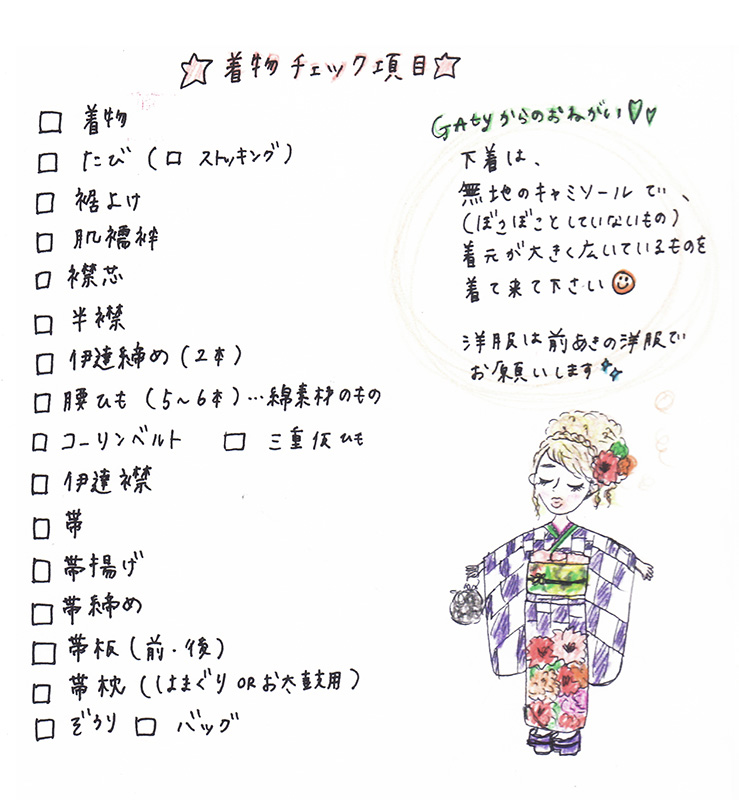 ☆着物チェック項目☆
□ 着物
□ たび (□ ストッキング)
□ 裾よけ
□ 肌襦袢
□ 襟芯
□ 半襟
□ 伊達締め (2本)
□ 腰ひも (5~6本)…綿素材のもの
□ コーリンベルト □ 三重仮ひも
□ 伊達襟
□ 帯
□ 帯揚げ
□ 帯締め
□ 帯板 (前・後)
□ 帯枕 (はまぐり ORお太鼓用)
□ ぞうり □ バッグ
GAtyからのおねがい♡♡
下着は、
無地のキャミソールで、
(ぼこぼことしていないもの)
着元が大きく広いているものを
着て来て下さい
洋服は前あきの洋服で
お願いします